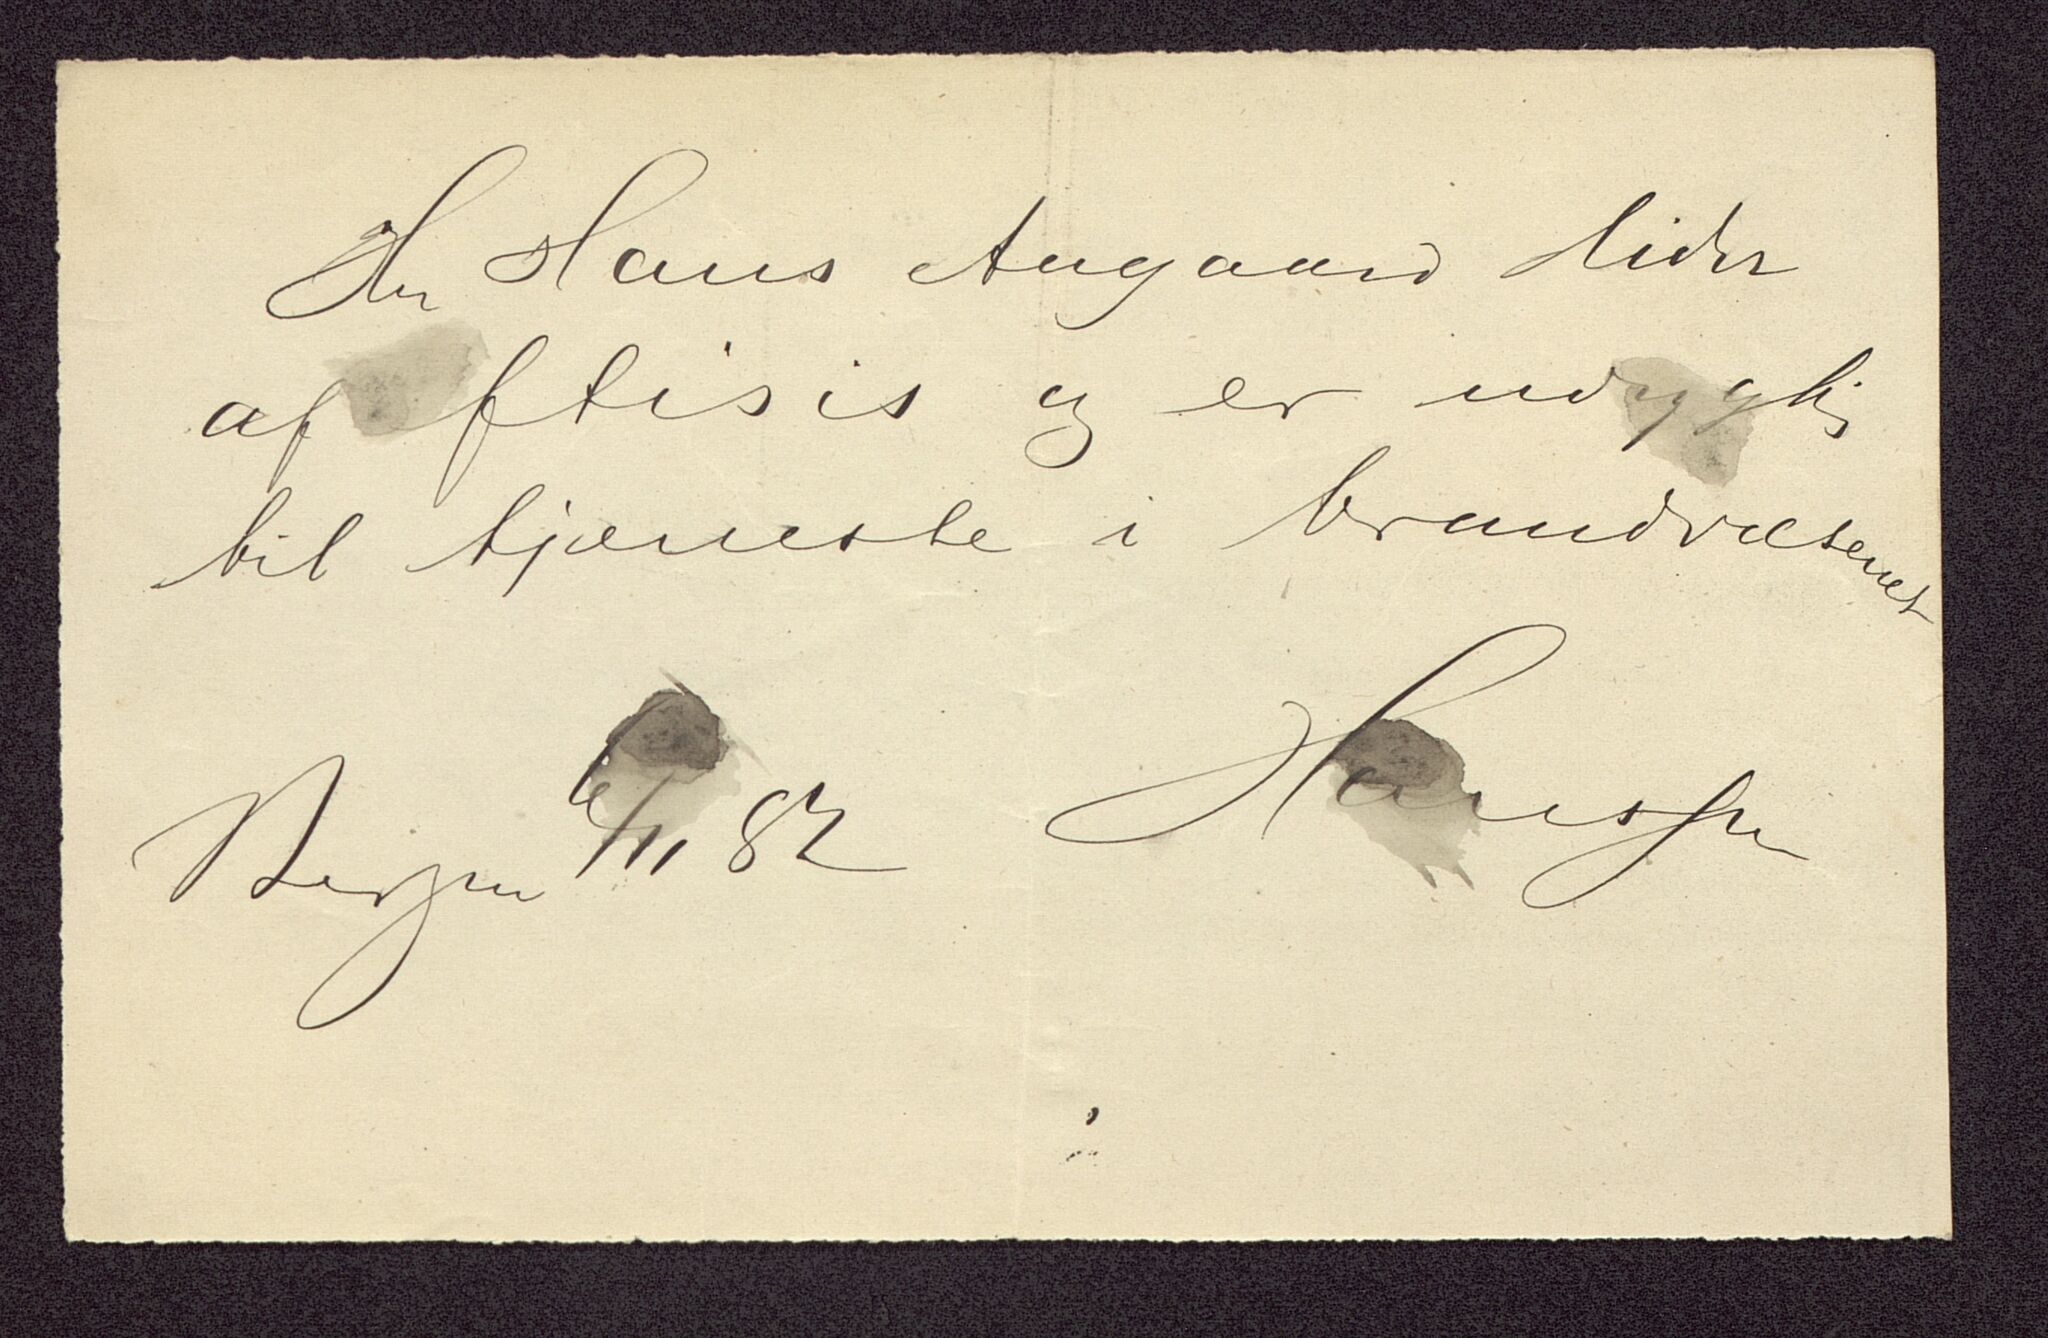 Hr Hans Aagaard lider
af ftisis og er udygtig
til tjæneste i brandvæsenet
Bergen 6/11 82 Hanssen